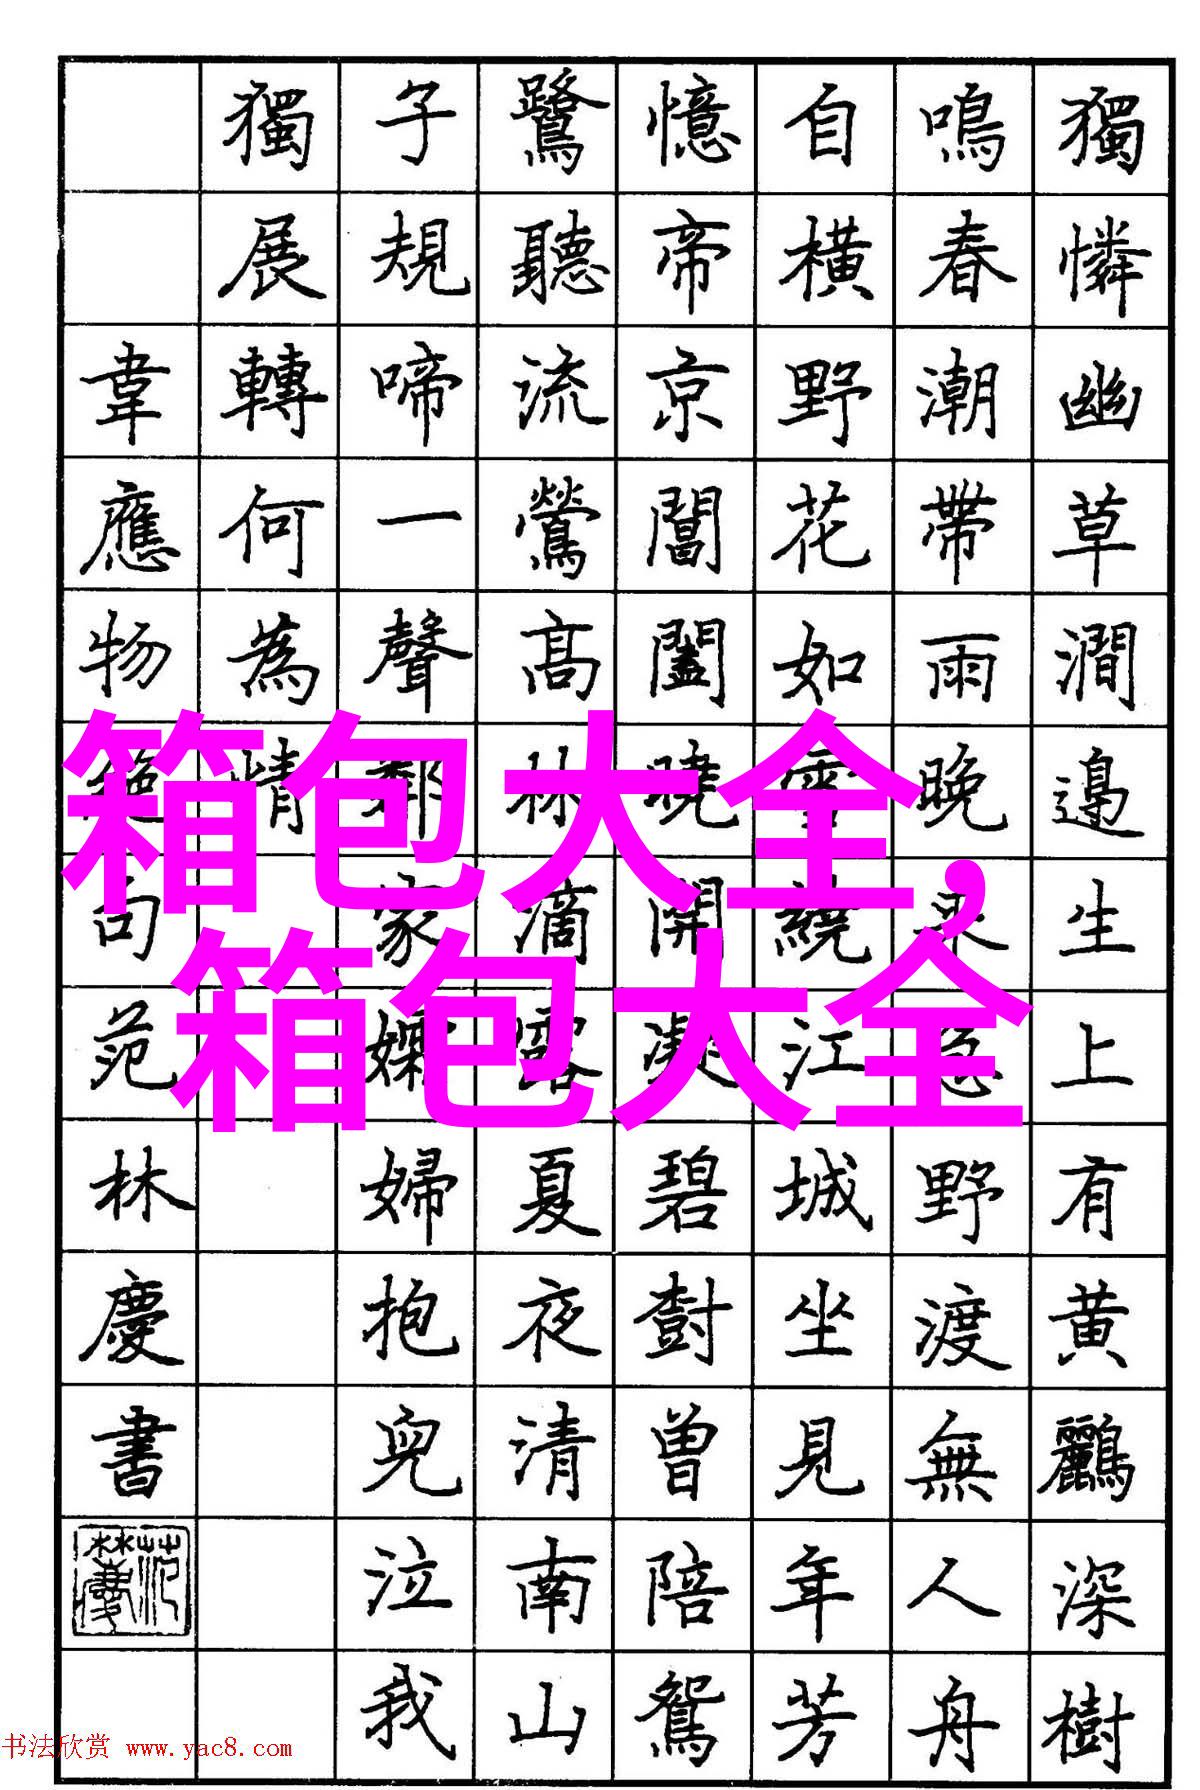 獨憐幽草澗邊生上有黄鸝深樹
鳴春潮帶雨晚來急野渡無人舟
自横野花如雪繞江城坐見年芳
憶帝京閶闔曉開凝碧樹曾陪鴛
鷺聽流鶯高林滴露夏夜清南山
子規啼一聲鄰家孀婦抱兒泣我
獨展轉何為情
韋應物絶句范林慶書
范林慶
箱包大全,
箱包大全
书法欣赏 www.yac8.com